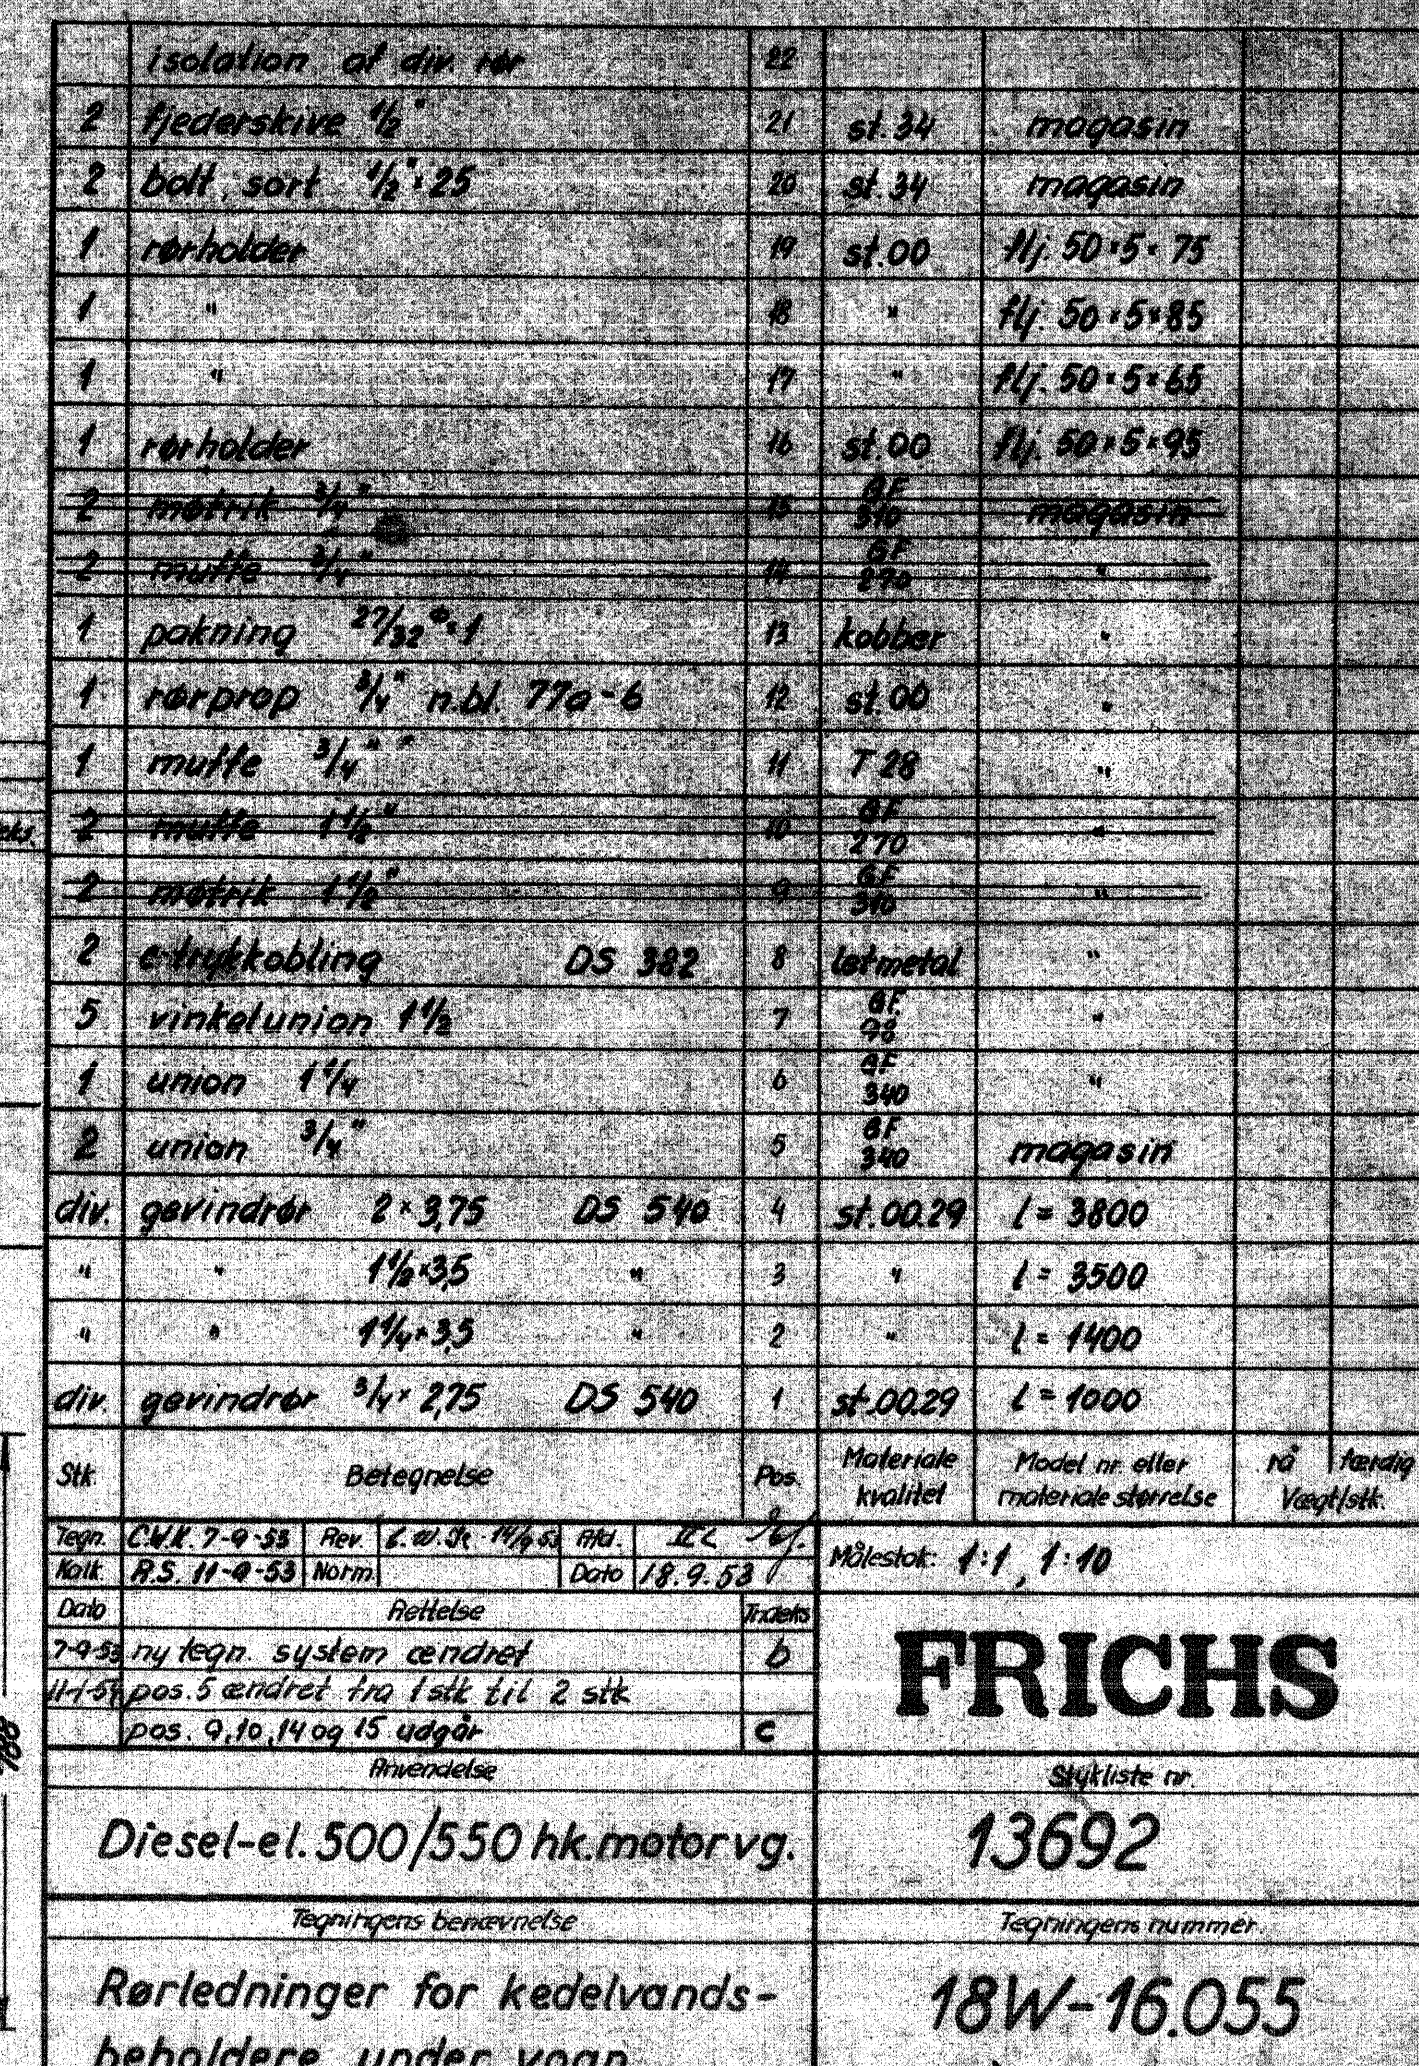 isolation af div. rør 22
2 fjederskive 1/2" 21 st. 34 magasin
2 bolt, sort 1/2" × 25 20 st. 34 magasin
1 rørholder 19 st.00 flj. 50 × 5 × 75
1 " 18 " flj. 50 × 5 × 85
1 " 17 " flj. 50 × 5 × 65
1 rørholder 16 st.00 flj. 50 × 5 × 95
2 møtrik 3/4" 15 GF 310 magasin
2 muffe 3/4" 14 GF 270 "
1 pakning 27/32 ø × 1 13 kobber "
1 rørprop 3/4" n.bl. 77a-6 12 st.00 "
1 muffe 3/4" " 11 T 28 "
2 muffe 1 1/2" 10 GF 270 "
2 møtrik 1 1/2" 9 GF 310 "
2 c-trykkobling DS 382 8 letmetal "
5 vinkelunion 1 1/2 7 GF. 98 "
1 union 1 1/4 6 GF 340 "
2 union 3/4" 5 GF 340 magasin
div. gevindrør 2 × 3,75 DS 540 4 st.00.29 l = 3800
" " 1 1/2 × 3,5 " 3 " l = 3500
" " 1 1/4 × 3,5 " 2 " l = 1400
div. gevindrør 3/4 × 2,75 DS 540 1 st.00.29 l = 1000
Stk Betegnelse Pos. Materiale kvalitet Model nr. eller materiale størrelse rå færdig Vægt/stk.
Tegn. C.W.K. 7-9-53 Rev. 14/9 53 Afd.
Kalk. R.S. 11-9-53 Norm. Dato 18.9.53
Målestok: 1:1, 1:10
Dato Rettelse Indeks
7-9-53 ny tegn. system ændret b
11-1-54 pos. 5 ændret fra 1 stk til 2 stk
pos. 9,10,14 og 15 udgår c
FRICHS
Anvendelse
Diesel-el. 500/550 hk. motorvg.
Stykliste nr.
13692
Tegningens benævnelse
Rørledninger for kedelvands-
beholdere under vogn
Tegningens nummer.
18W-16.055